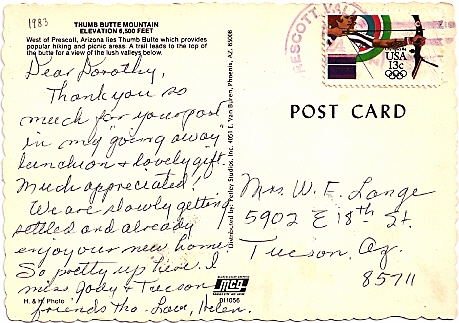 1983
THUMB BUTTE MOUNTAIN
ELEVATION 6,500 FEET
West of Prescott, Arizona lies Thumb Butte which provides
popular hiking and picnic areas. A trail leads to the top of
the butte for a view of the lush valleys below.
Dear Dorothy,
Thank you so
much for your part
in my "going away"
luncheon & lovely gift.
Much appreciated!
We are slowly getting
settled and already
enjoy our new home.
So pretty up here. I
miss Jody & Tucson
friends tho - Love, Helen.
H. & H. Photo
Distributed by Petley Studios, Inc. 4051 E. Van Buren, Phoenix, AZ. 85008
MCG
011056
PRESCOTT VALLEY
USA
13c
POST CARD
Mrs. W. F. Lange
5902 E 18th St.
Tucson, Az.
85711